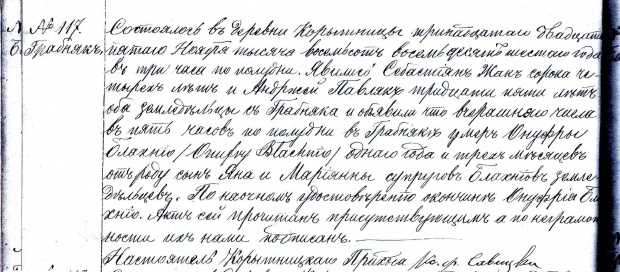 № 117.
Грабнякъ.
Состоялось въ деревни Корытницы тринадцатаго двадцать
пятаго Ноября тысяча восемьсотъ восемьдесятъ шестаго года
въ три часа по полудни. Явились Себастіянъ Жакъ сорока че-
тырехъ лѣтъ и Андржей Павлякъ тридцати пяти лѣтъ
оба земледѣльцы съ Грабняка и объявили что вчерашняго числа
въ пять часовъ по полудни въ Грабнякѣ умеръ Онуфры
Блахніо /Onufry Blachnio/ однаго года и трехъ мѣсяцевъ
отъ роду сынъ Яна и Маріянны супруговъ Блахніовъ земле-
дѣльцевъ. По наочномъ удостовѣреніи о кончинѣ Онуфрія Бла-
хніо. Актъ сей прочитанъ присутствующимъ а по неграмот-
ности ихъ нами подписанъ.
Настоятель Корытницкаго Прихода